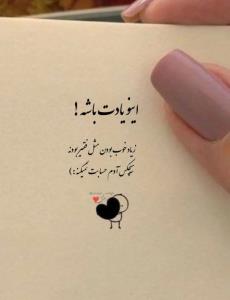 اینو یادت باشه !
زیاد خوب بودن مثل فقیر بودنه
هیچکس آدم حسابت نمیکنه : )